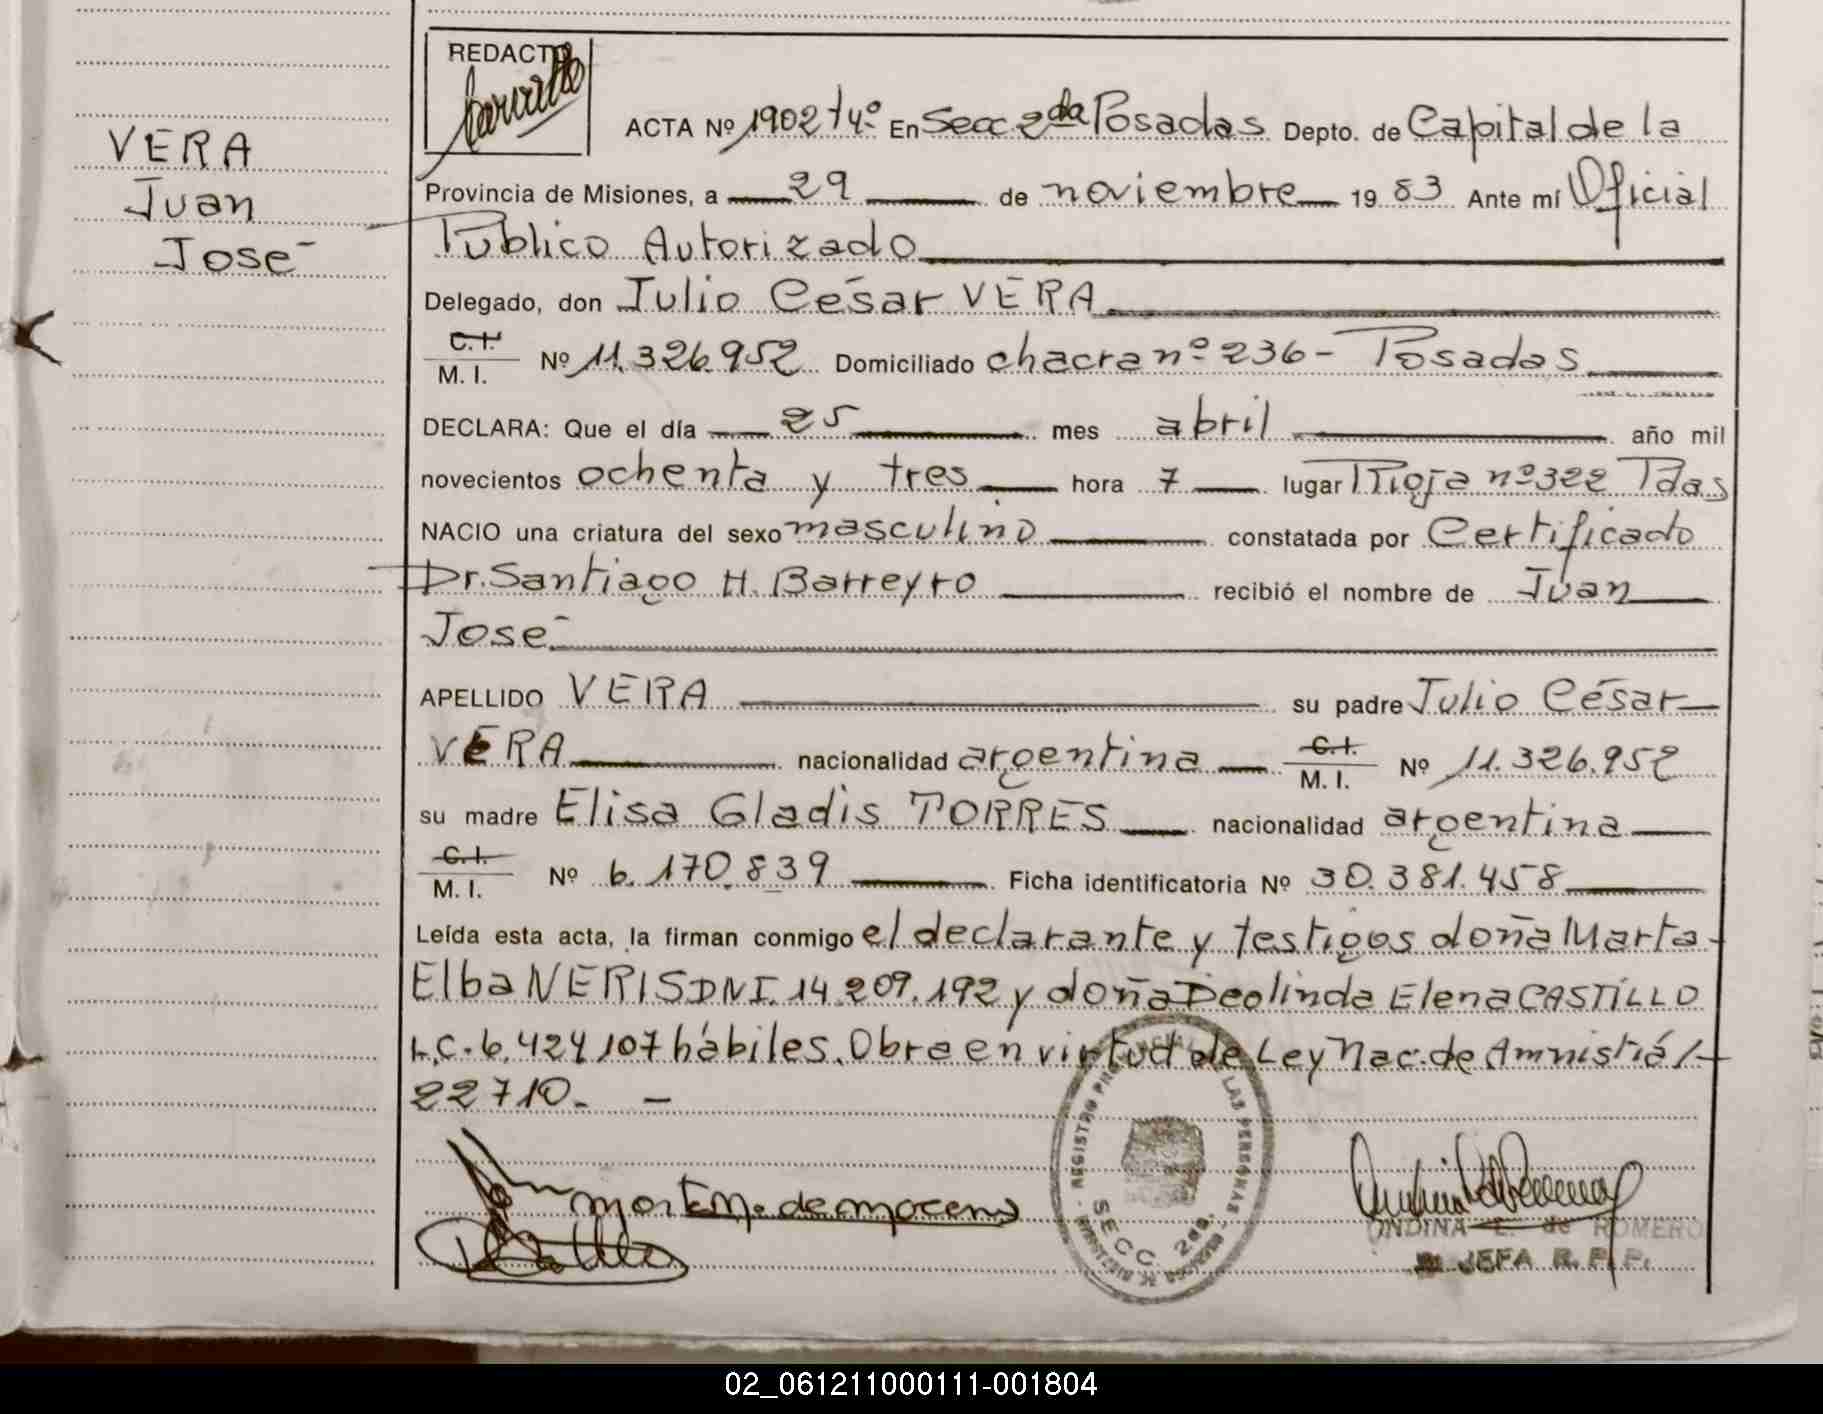 VERA
Juan
José
REDACTO
ACTA Nº 1902 t4º En Secc 2da Posadas Depto. de Capital de la
Provincia de Misiones, a 29 de noviembre 1983 Ante mí Oficial
Público Autorizado
Delegado, don Julio César VERA
C.I. M. I. Nº 11.326.952 Domiciliado chacra nº 236- Posadas
DECLARA: Que el día 25 mes abril año mil
novecientos ochenta y tres hora 7 lugar Rioja nº 322 Pdas
NACIO una criatura del sexo masculino constatada por Certificado
Dr. Santiago H. Barreyro recibió el nombre de Juan
José
APELLIDO VERA su padre Julio César
VERA nacionalidad argentina C.I. M. I. Nº 11.326.952
su madre Elisa Gladis TORRES nacionalidad argentina
C.I. M. I. Nº 6.170.839 Ficha identificatoria Nº 30.381.458
Leída esta acta, la firman conmigo el declarante y testigos doña Marta
Elba NERIS DNI. 14.209.192 y doña Deolinda Elena CASTILLO
L.C. 6.424.107 hábiles. Obra en virtud de Ley Nac. de Amnistiá
22710. -
REGISTRO LAS PERSONAS
SECC 2da.
ONDINA E. de ROMERO
JEFA R.P.P.
02_061211000111-001804